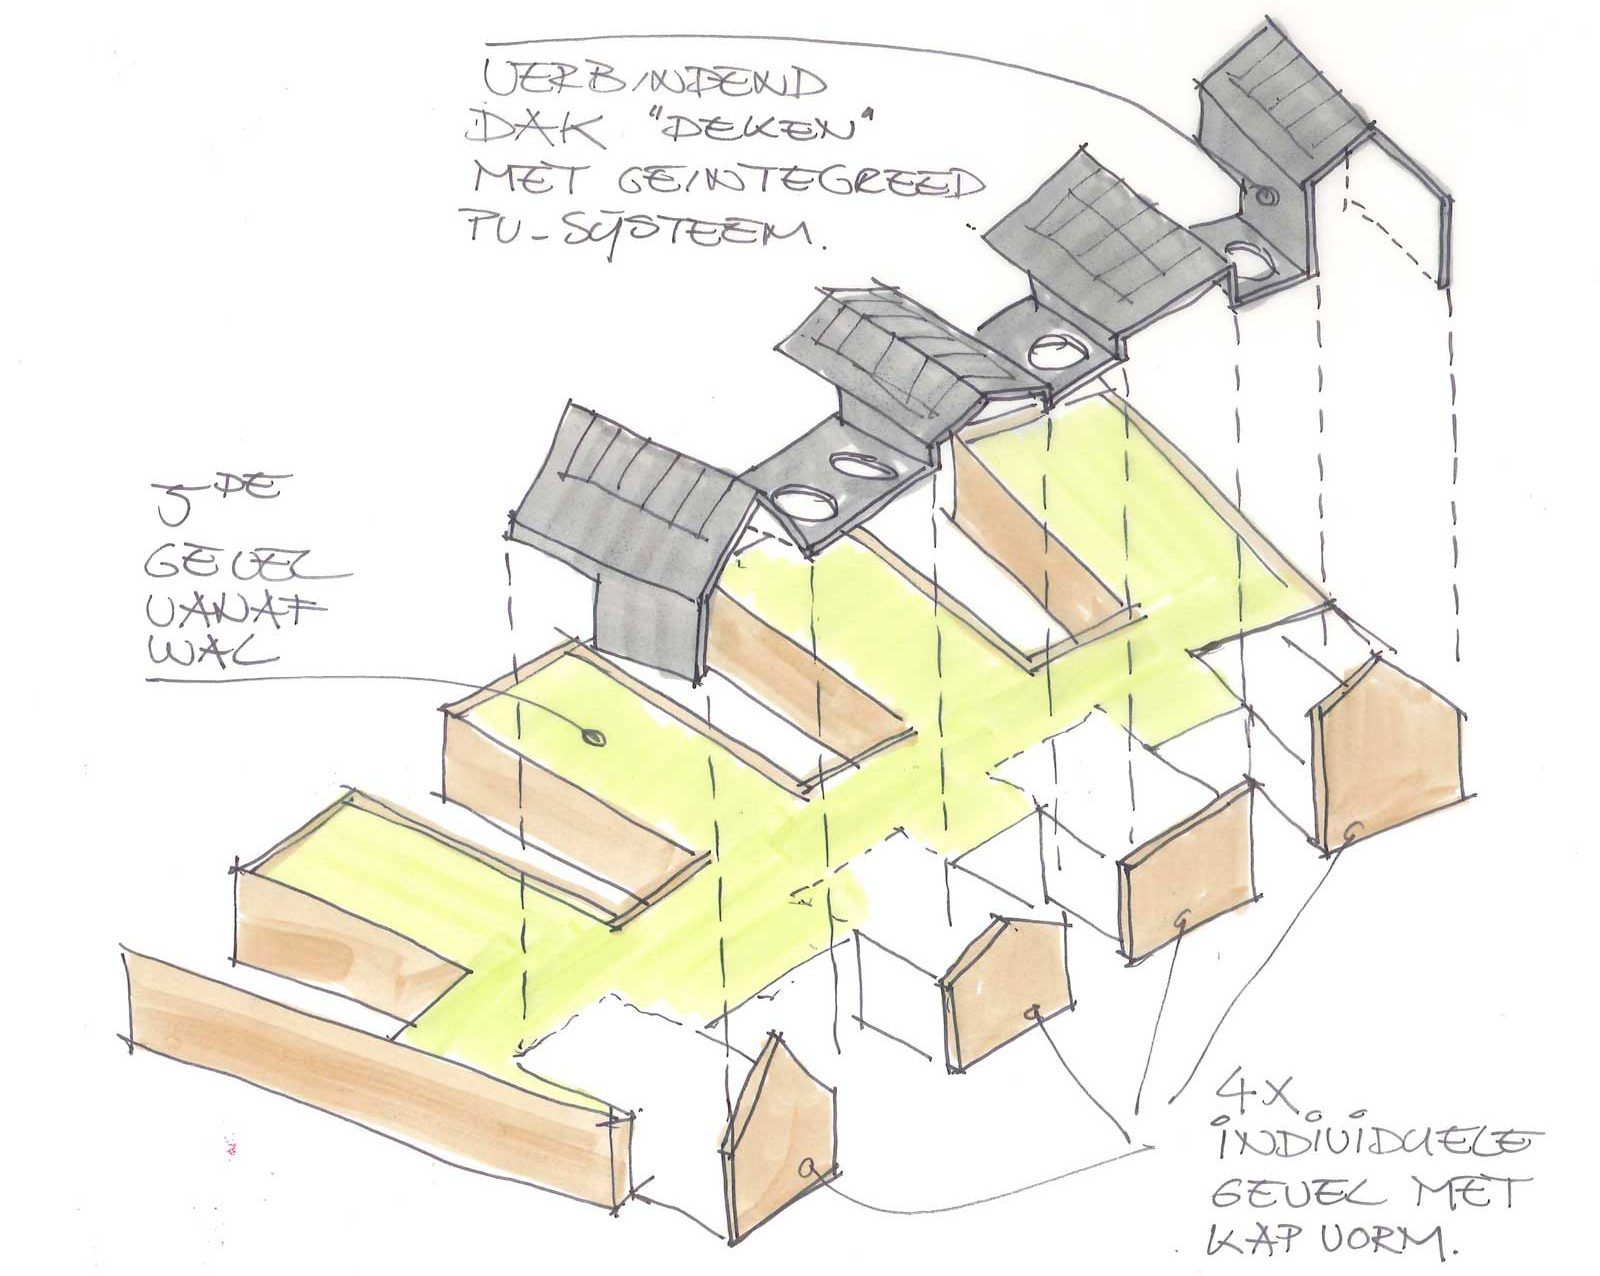 VERBINDEND
DAK "DEKEN"
MET GEINTEGREED
PV-SYSTEEM.
5DE
GEVEL
VANAF
WAL
4X
INDIVIDUELE
GEVEL MET
KAP VORM.